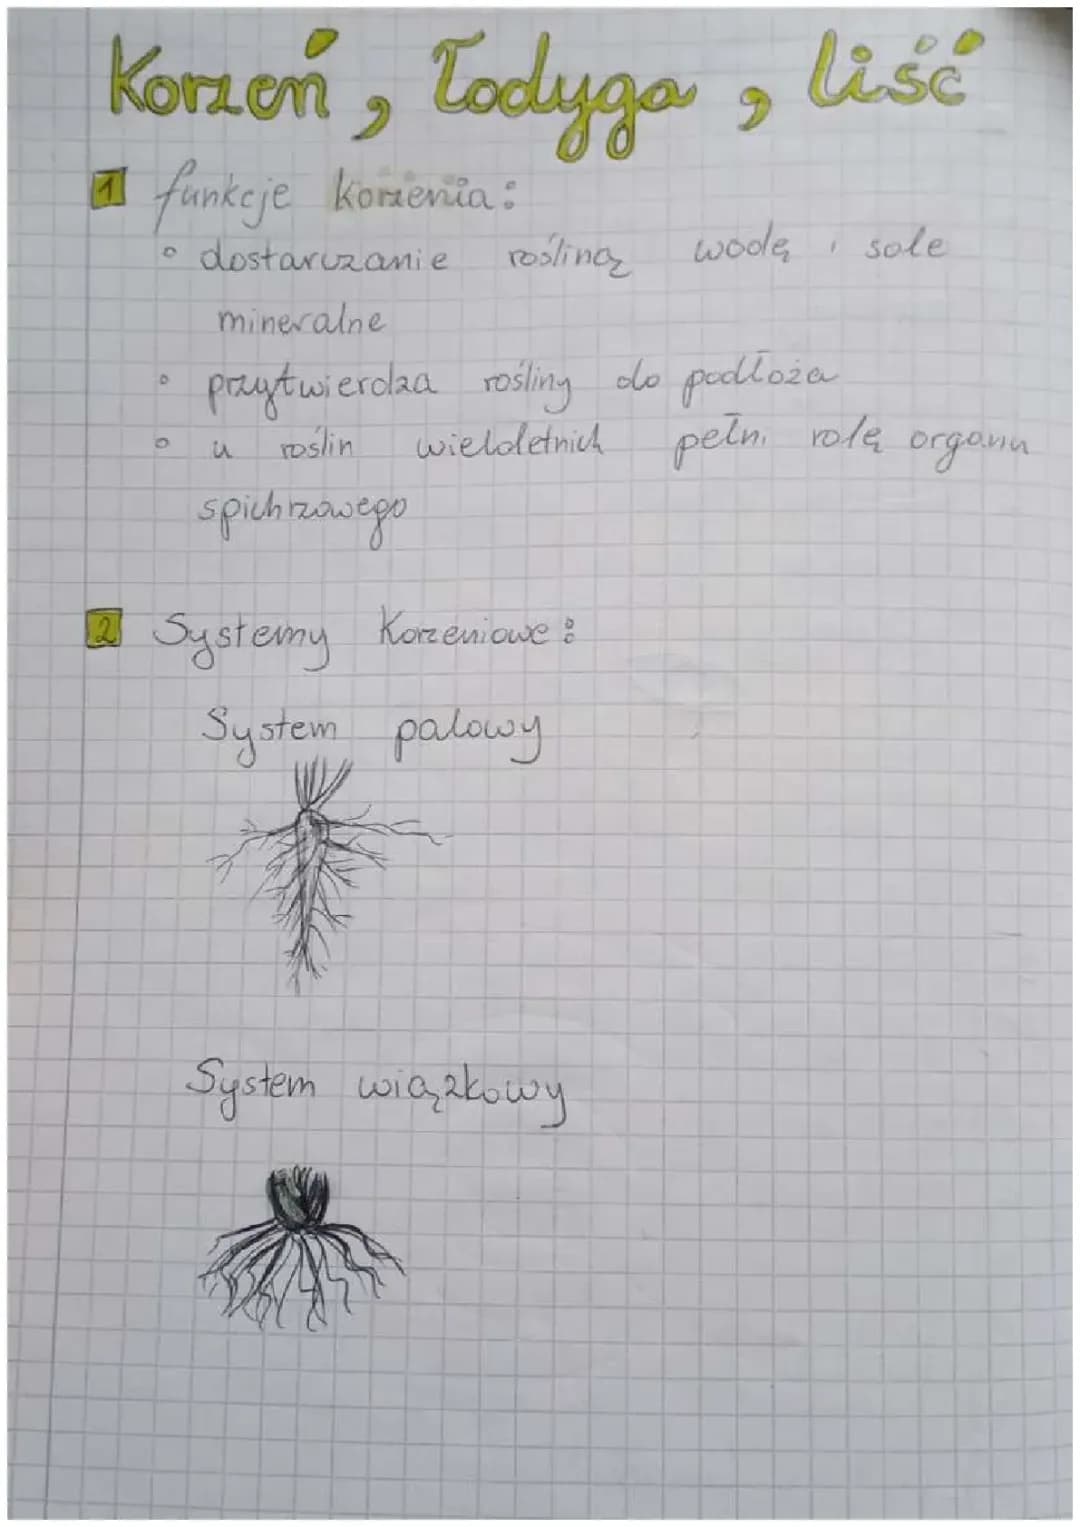 Korzeń, Łodyga, liść
1 funkcje korzenia:
• dostarczanie rośliną wodę i sole
mineralne
• przytwierdza rośliny do podłoża
• u roślin wieloletnich pełni rolę organu
spichrzowego
2 Systemy Korzeniowe:
System palowy
System wiązkowy